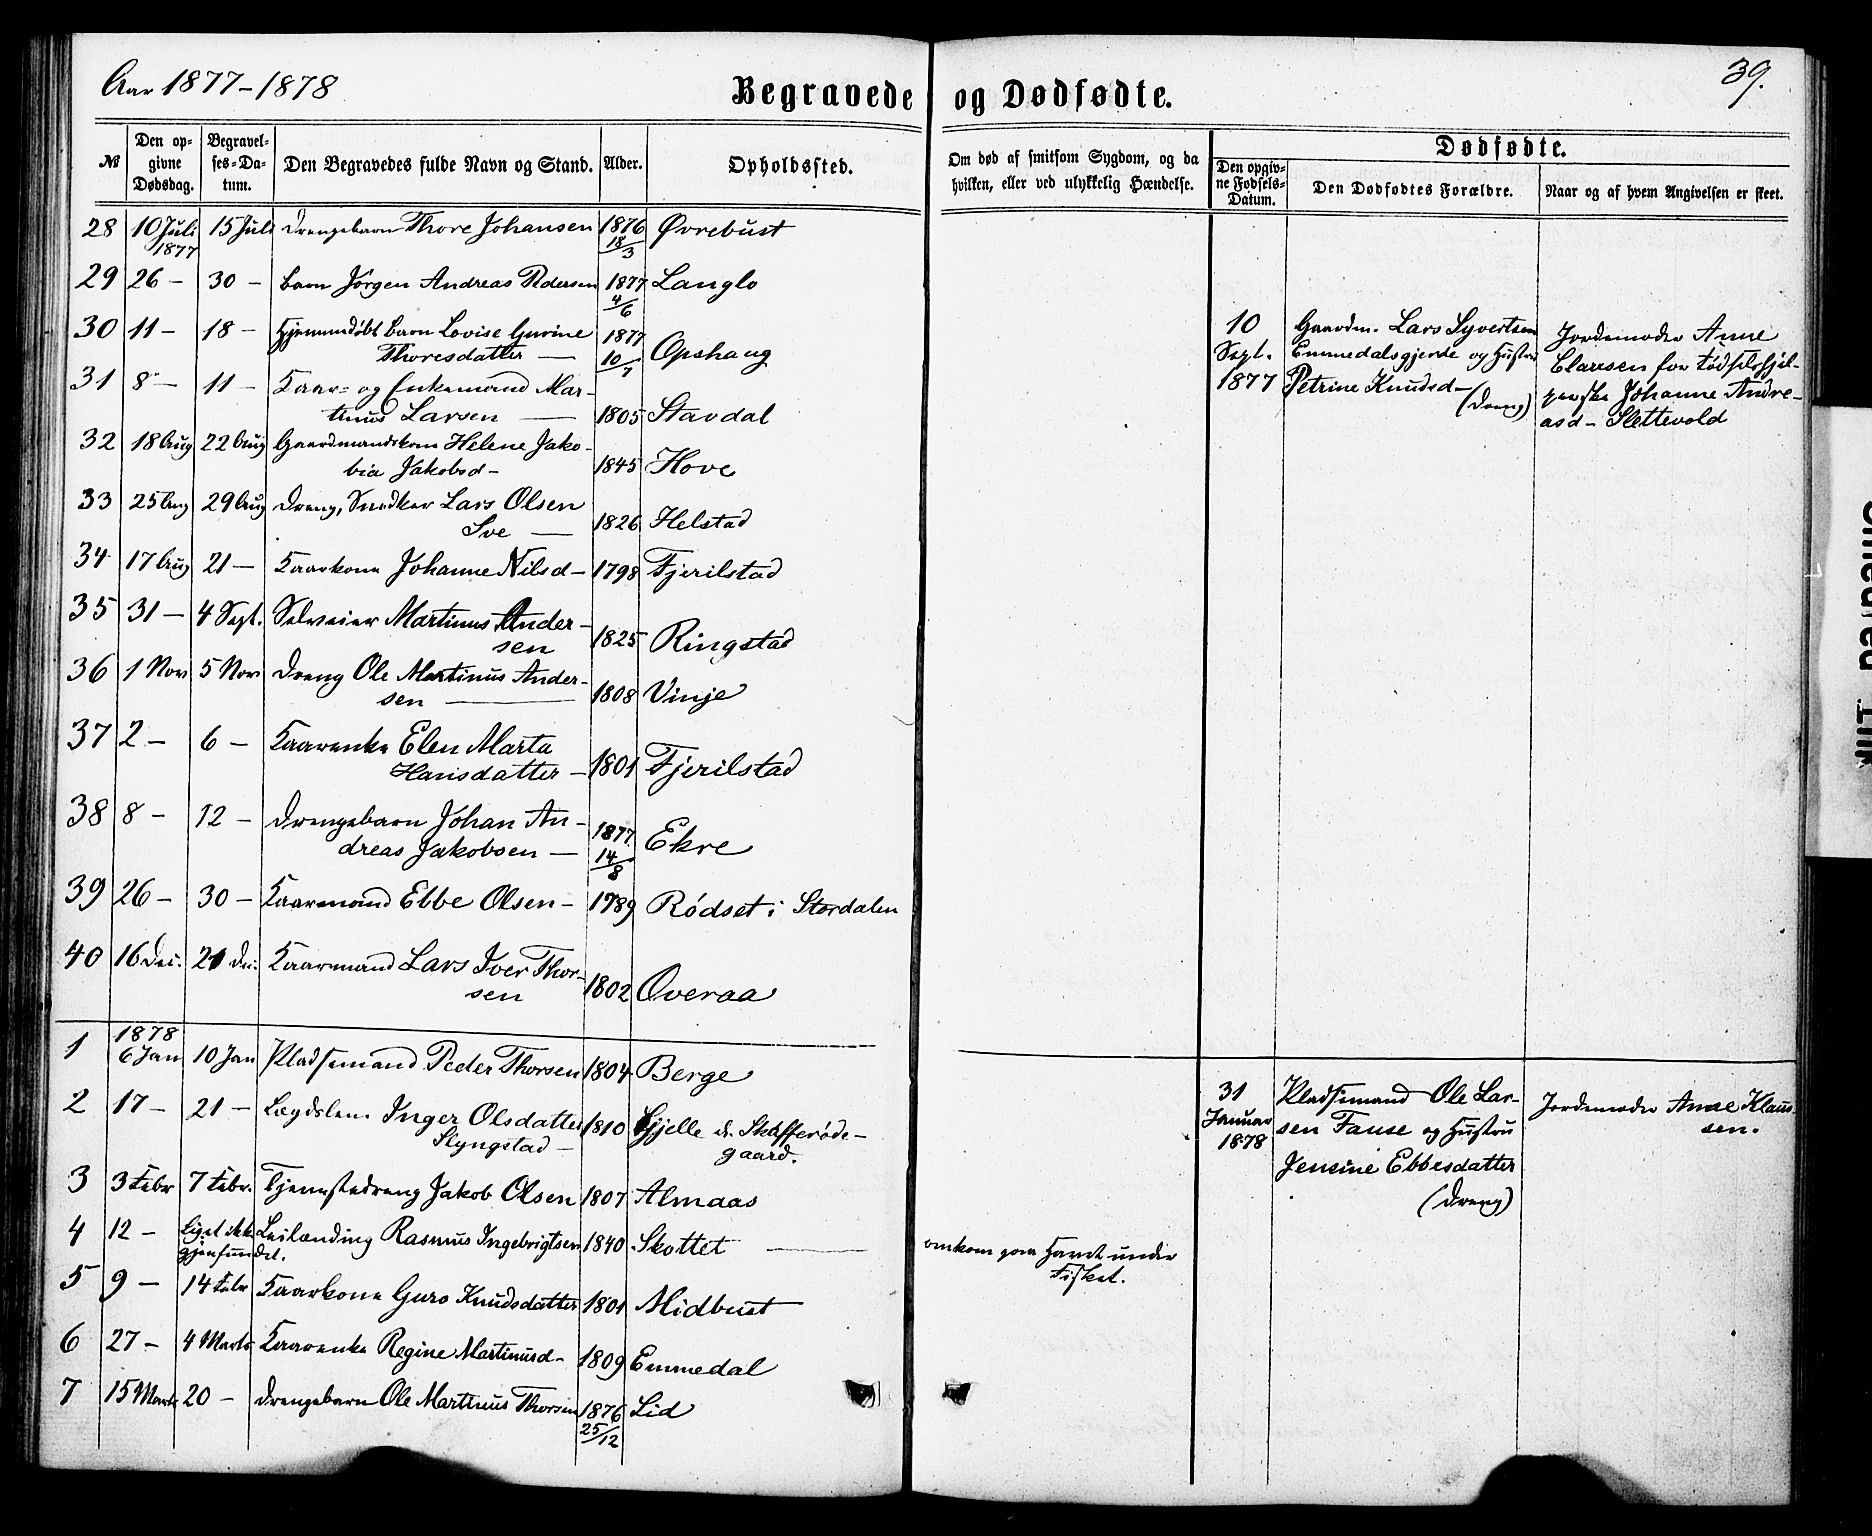 Aar 1877-1878
Begravede og Dødfødte.
39.
№
Den opgivne Dødsdag.
Begravelses-Datum.
Den Begravedes fulde Navn og Stand.
Alder.
Opholdssted.
Om død af smitsom Sygdom, og da hvilken, eller ved ulykkelig Hændelse.
Dødfødte.
Den opgivne Fødsels-Datum.
Den Dødfødtes Forældre.
Naar og af hvem Angivelsen er skeet.
28 10 Juli 1877 15 Juli Drengebarn Thore Johansen 1876 18/3 Øvrebust
29 26 – 30 – Barn Jørgen Andreas Pedersen 1877 4/6 Langlo
30 11 – 18 – Hjemmedøbt Barn Lovise Gurine
Thoresdatter — 1877 10/7 Opshaug
31 8 – 11 – Kaar= og Enkemand Mar-
tinus Larsen — 1805 Stavdal
32 18 Aug 22 Aug Gaardmandskone Helene Jako-
bia Jakobsd – 1845 Hove
33 25 Aug 29 Aug Dreng, Snedker Lars Olsen
Sve — 1826 Helstad
34 17 Aug 21 – Kaarkone Johanne Nilsd – 1798 Fjerilstad
35 31 – 4 Sept. Selveier Martinus Ander-
sen 1825 Ringstad
36 1 Nov 5 Nov Dreng Ole Martinus Ander-
sen — 1808 Vinje
37 2 – 6 – Kaarenke Elen Marta
Hansdatter – 1801 Fjerilstad
38 8 – 12 – Drengebarn Johan An-
dreas Jakobsen – 1877 14/8 Ekre
39 26 – 30 – Kaarmand Ebbe Olsen – 1789 Rødset i Stordalen
40 16 Dec. 21 Dec. Kaarmand Lars Iver Thor-
sen 1802 Overaa
1878
1 6 Jan 10 Jan Pladsemand Peder Thorsen 1804 Berge
2 17 – 21 – Lægdslem Inger Olsdatter
Slyngstad – 1810 Gjelle d. Skafferøde-
gaard.
3 3 Febr 7 Febr. Tjenestedreng Jakob Olsen 1807 Almaas
4 12 – Liget ikke
gjenfundet. Leilænding Rasmus Ingebrigtsen 1840 Skottet —
omkom paa Havet under
Fisket.
5 9 – 14 Febr Kaarkone Guro Knudsdatter 1801 Midbust
6 27 – 4 Marts Kaarenke Regine Martinusd – 1809 Emmedal
7 15 Marts 20 – Drengebarn Ole Martinus Thorsen 1876 25/12 Lid
10
Sept.
1877
Gaardm. Lars Syvertsen
Emmedalsgjerde og Hustru
Petrine Knudsd –
(Dreng)
Jordemoder Anne
Clausen for Fødselshjæl-
perske Johanne Andre-
asd – Slettevold
31
Januar
1878
Pladsemand Ole Lar-
sen Fause og Hustru
Jensine Ebbesdatter
(Dreng)
Jordemoder Anne Klaus-
sen.